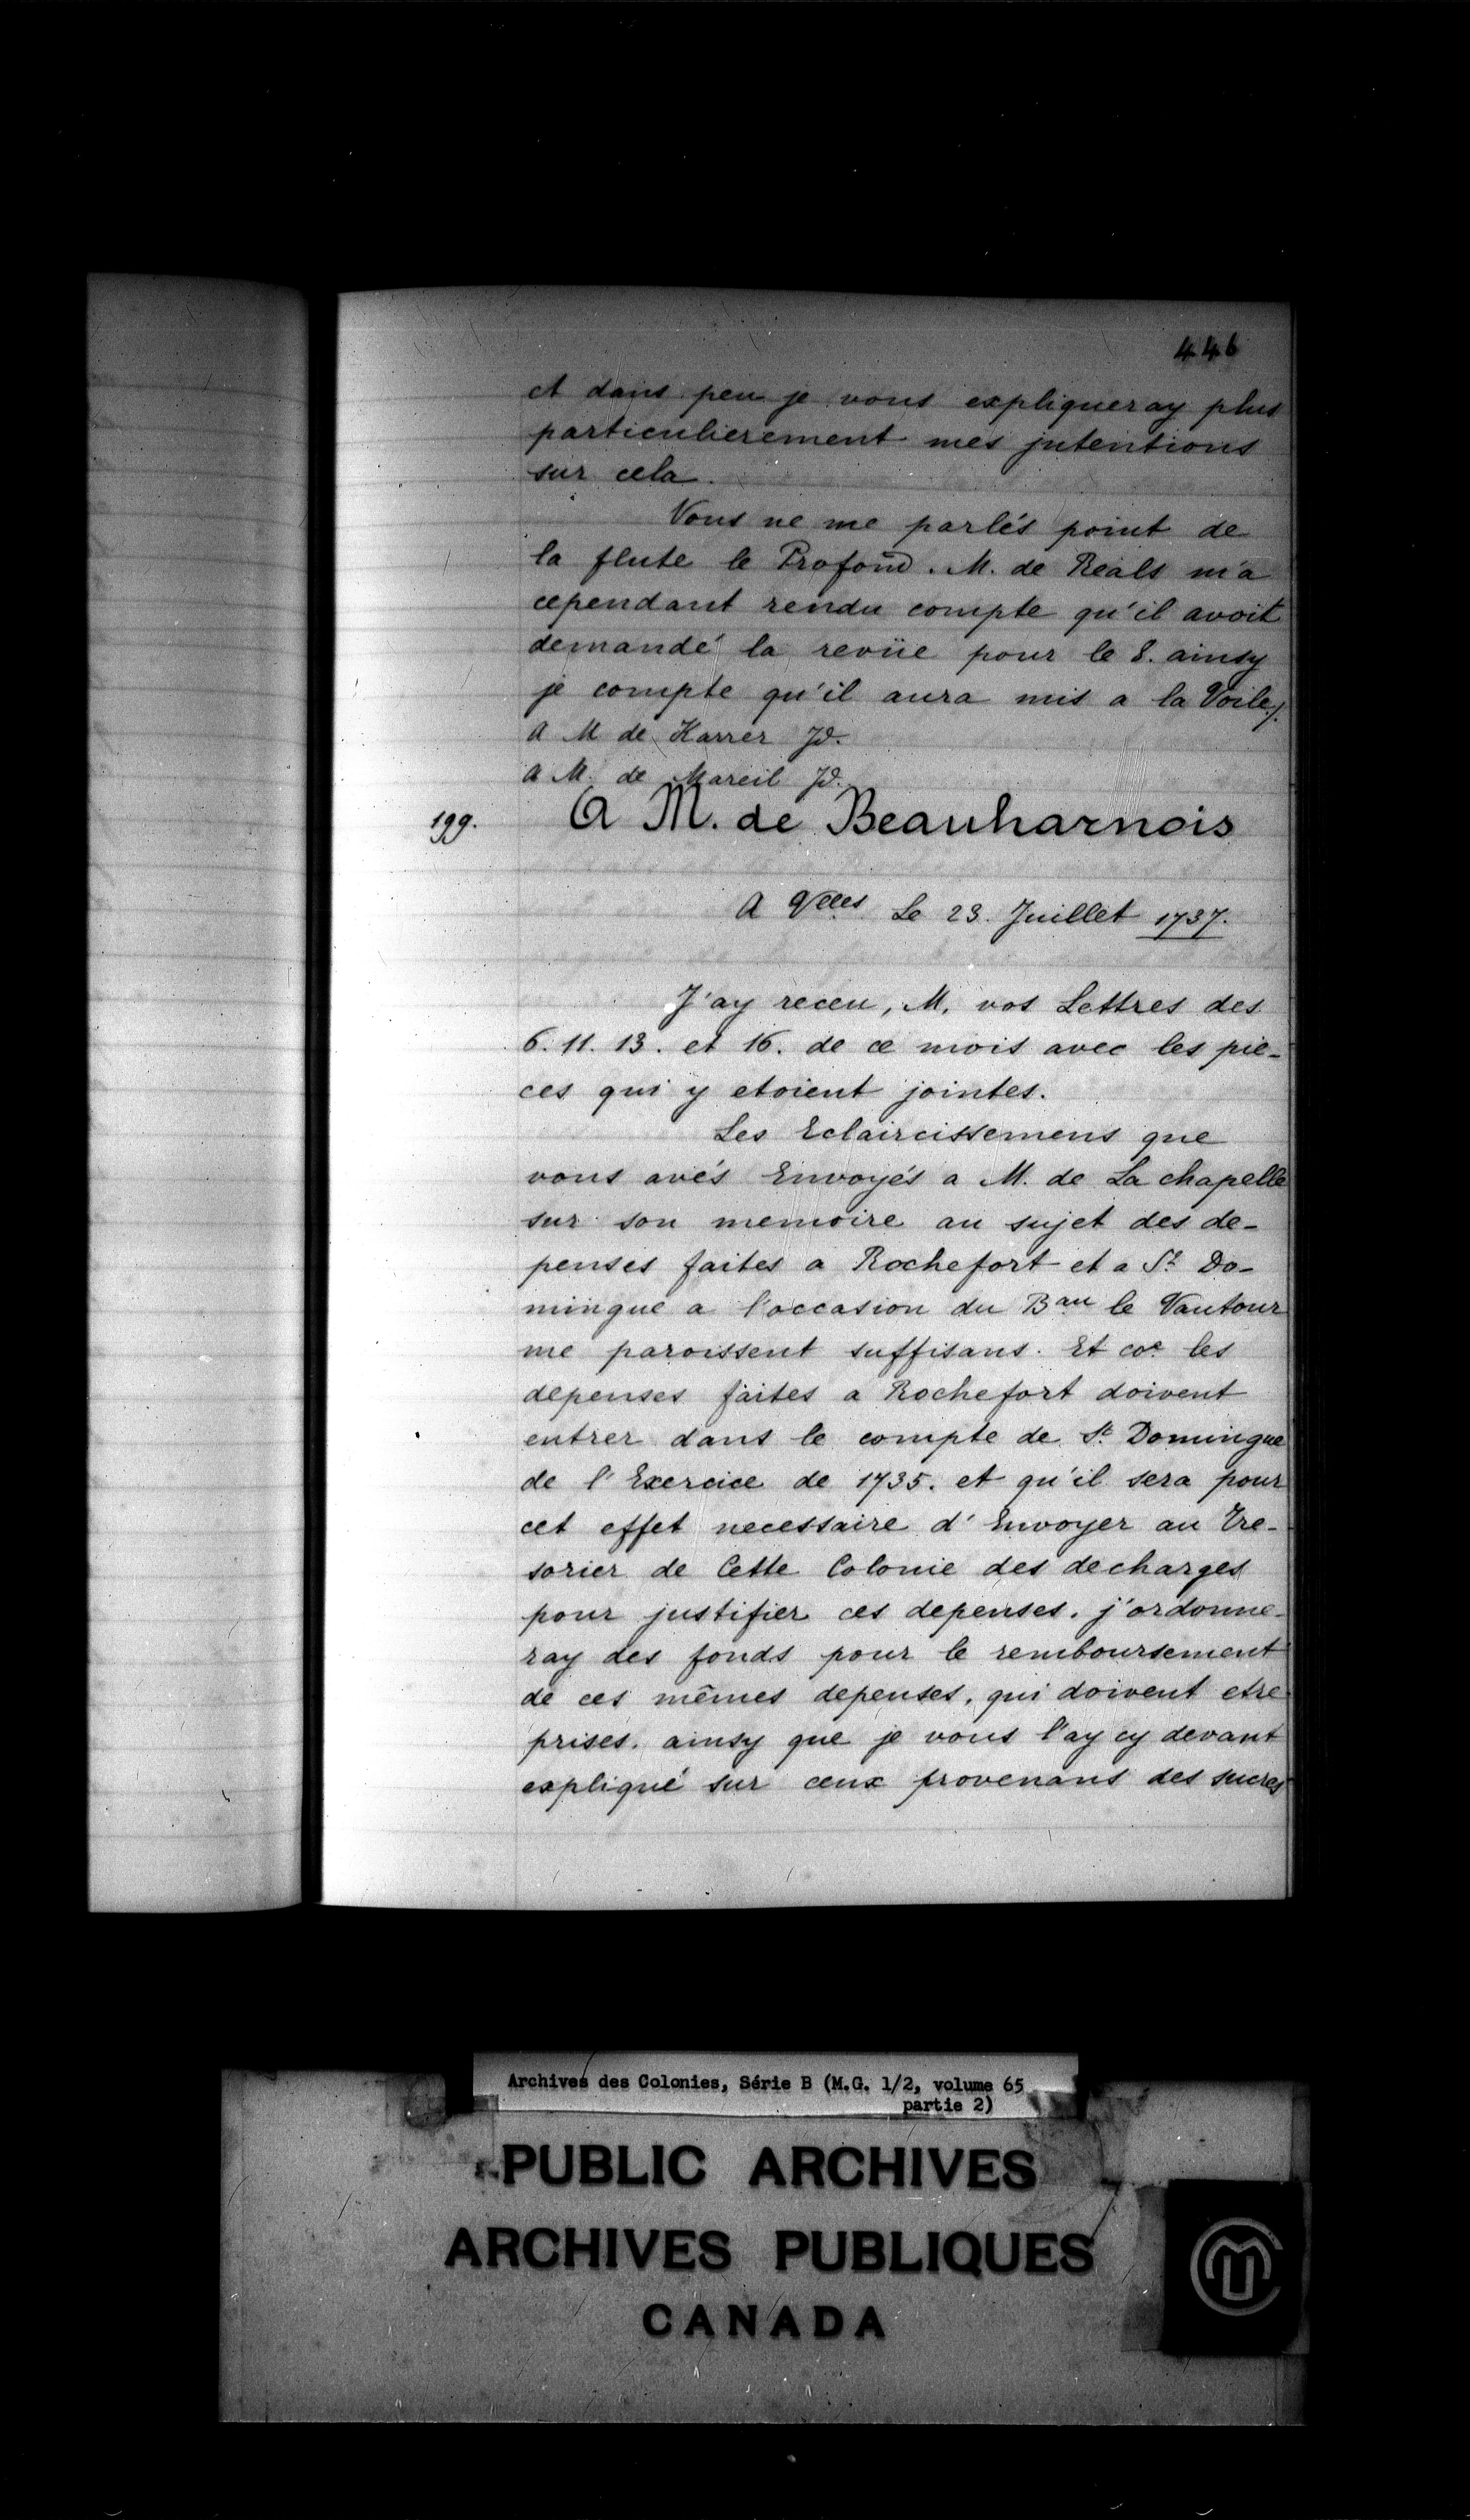 446
et dans peu je vous expliqueray plus
particulierement mes jntentions
sur cela.
Vous ne me parlés point de
la flute le Profond. M. de Reals m'a
cependant rendu compte qu'il avoit
demandé la revüe pour le 8. ainsy
je compte qu'il aura mis a la Voile./.
A M de Karrer Jd.
a M. de Mareil Jd.
199.
A M. de Beauharnois
A Vlles Le 23. Juillet 1737.
J'ay receu, M, vos Lettres des
6. 11. 13. et 16. de ce mois avec les pie-
ces qui y etoient jointes.
Les Eclaircissemens que
vous avés Envoyés a M. de La chapelle
sur son memoire au sujet des de-
penses faites a Rochefort et a St Do-
mingue a l'occasion du Bau le Vautour
me paroissent suffisans. Et coe les
depenses faites a Rochefort doivent
entrer dans le compte de St Domingue
de l'Exercice de 1735. et qu'il sera pour
cet effet necessaire d'Envoyer au Tre-
sorier de Cette Colonie des decharges
pour justifier ces depenses. j'ordonne-
ray des fonds pour le remboursement
de ces mêmes depenses, qui doivent etre
prises. ainsy que je vous l'ay cy devant
expliqué sur ceux provenans des sucres
Archives des Colonies, Série B (M.G. 1/2, volume 65
partie 2)
PUBLIC ARCHIVES
ARCHIVES PUBLIQUES
CANADA